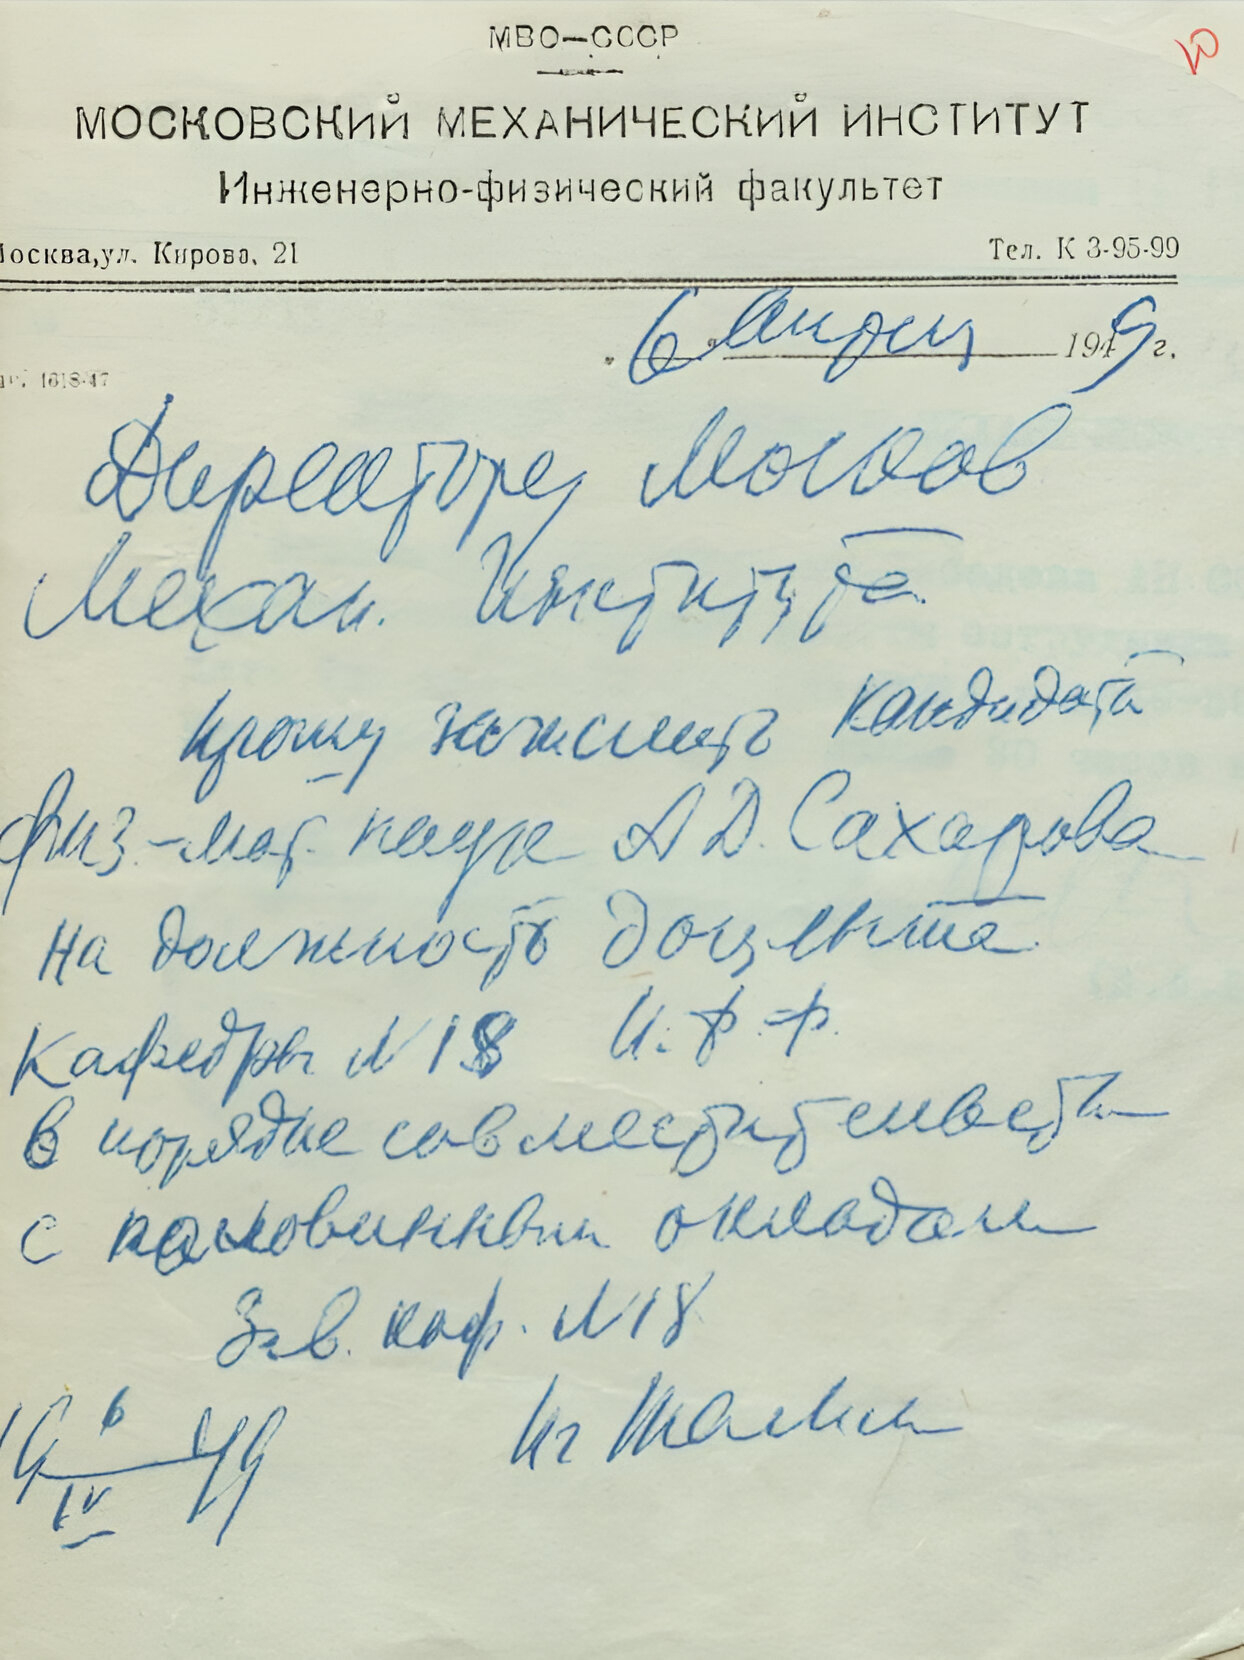 МВО—СССР
МОСКОВСКИЙ МЕХАНИЧЕСКИЙ ИНСТИТУТ
Инженерно-физический факультет
Москва, ул. Кирова, 21
Тел. К 3-95-99
6 Апреля 1949 г.
1618-47
Директору Москов
Механ. Института
Прошу зачислить кандидата
физ.-мат. наук А Д. Сахарова
на должность доцента
Кафедры N 18 И. Ф. Ф.
в порядке совместительства
с половинным окладом
Зав. каф. N 18
19 6/IV 49
Иг Тамм